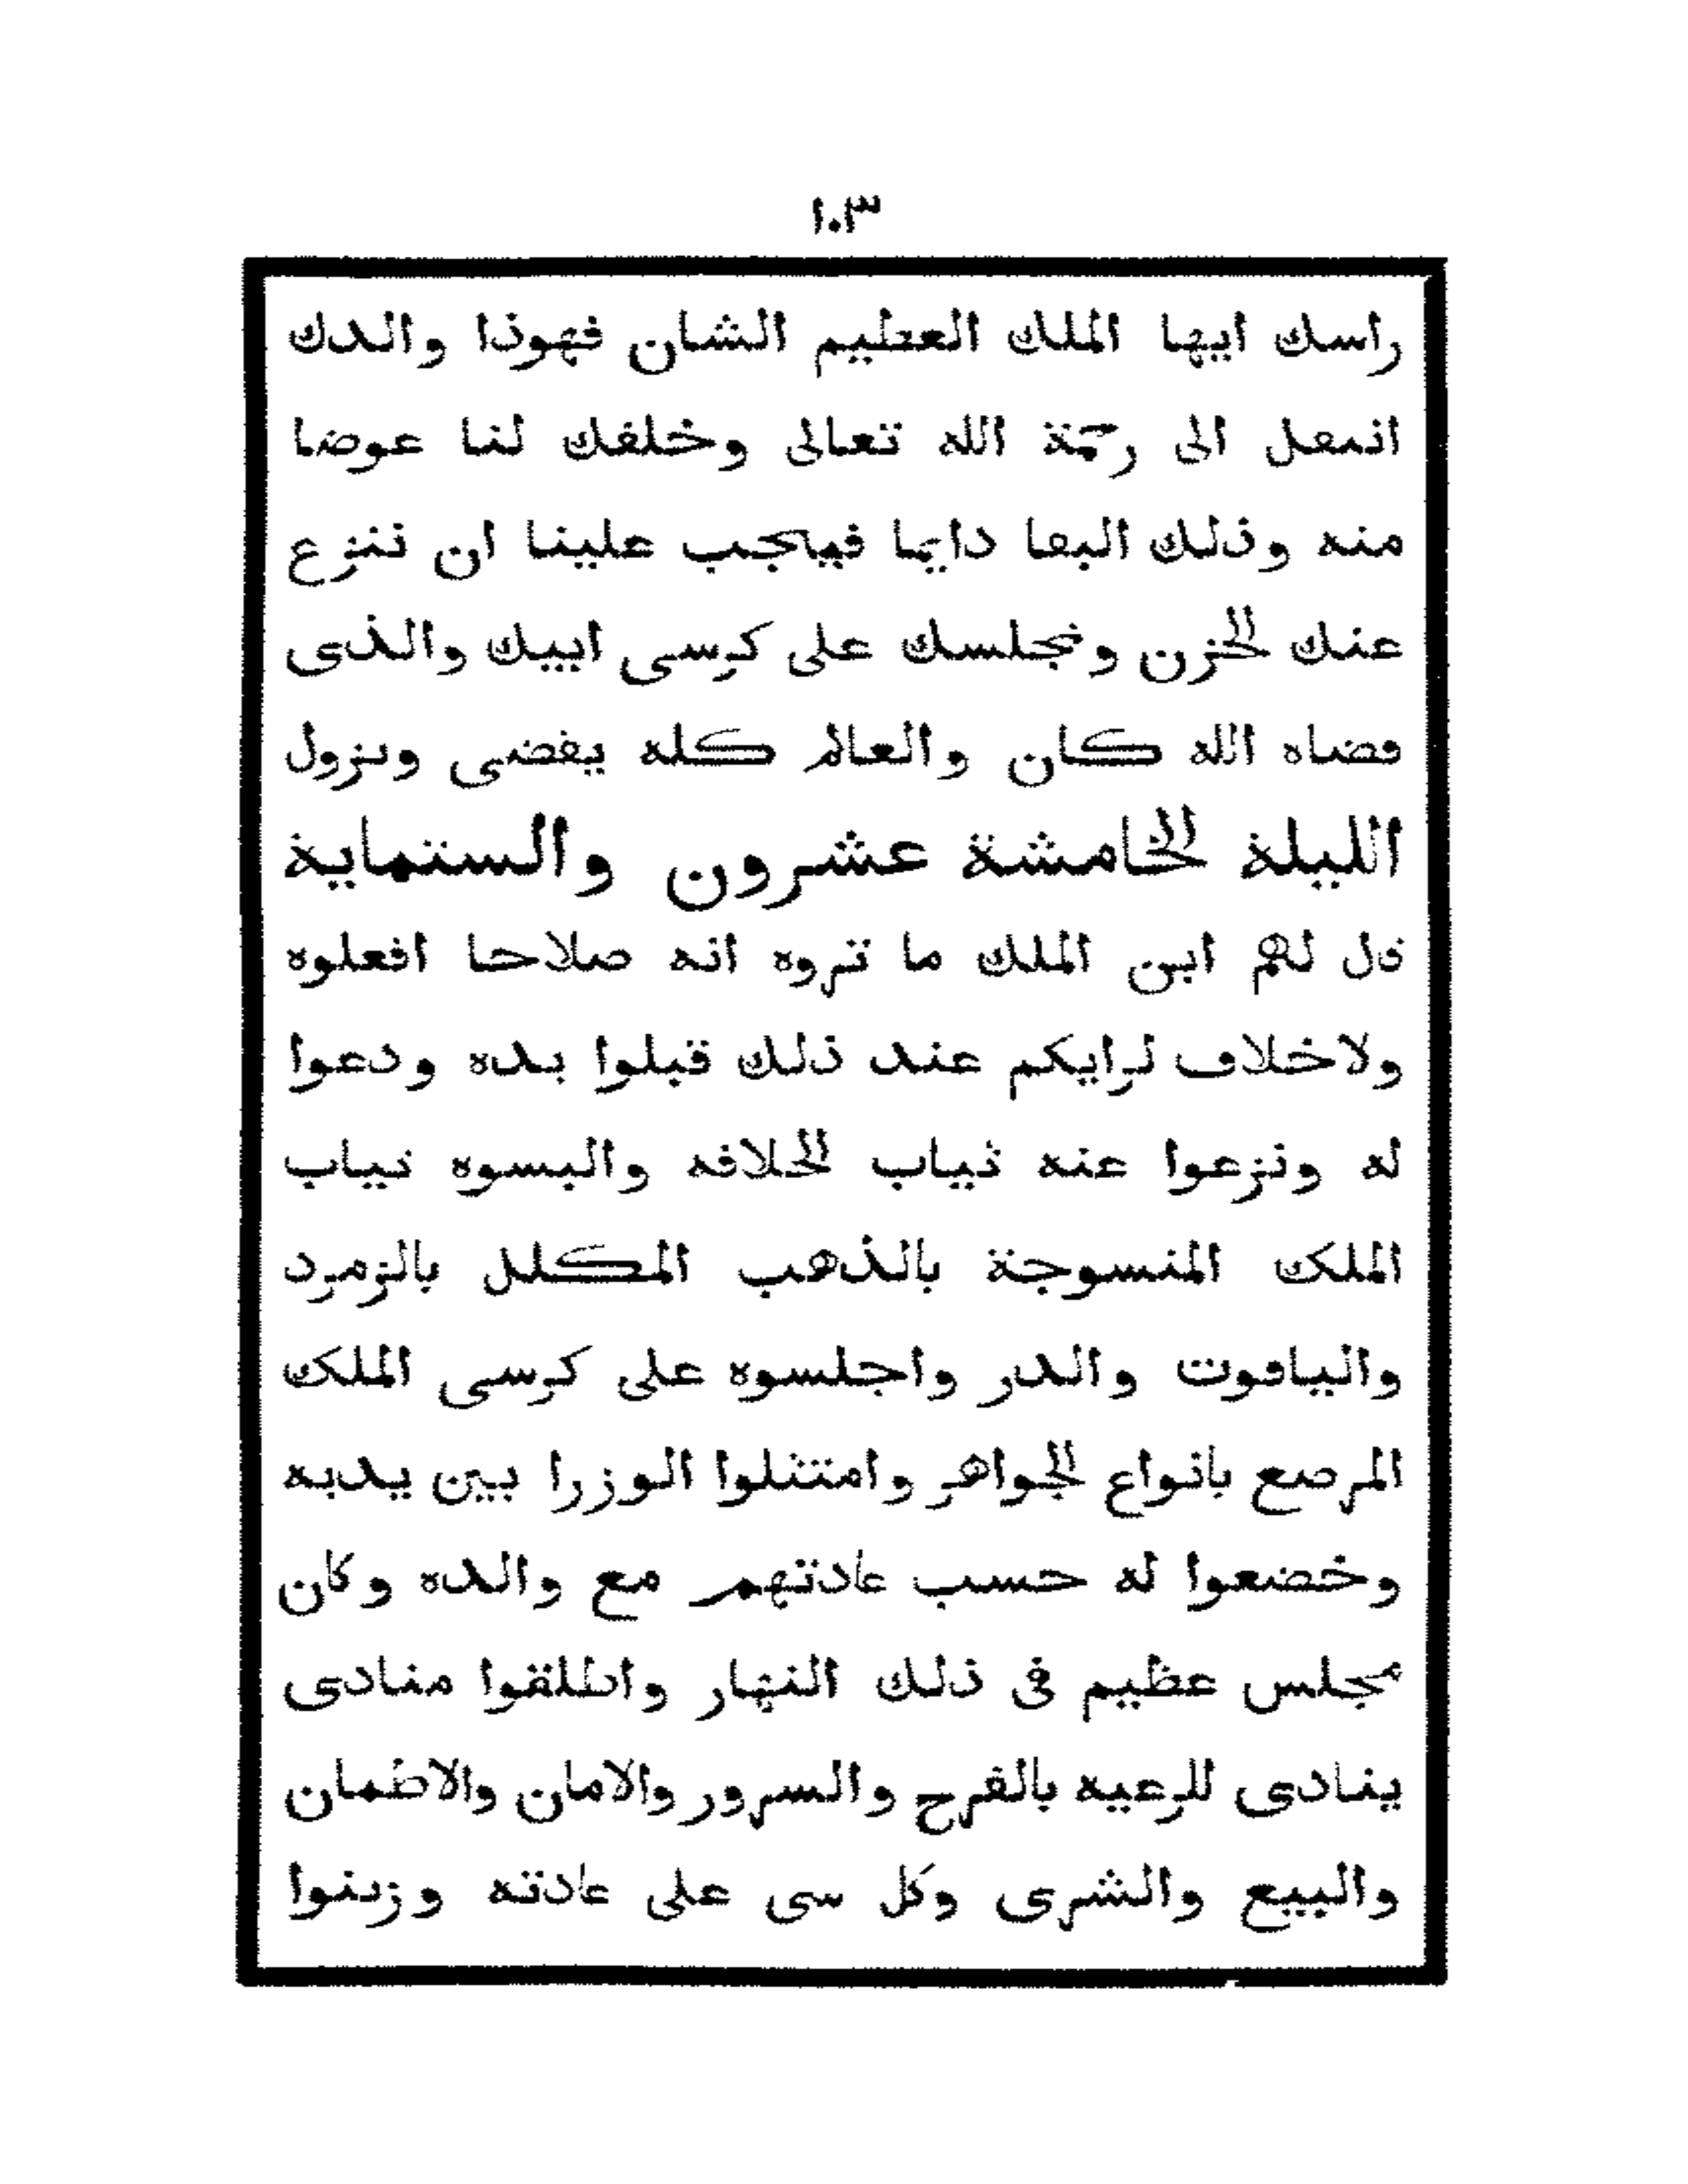 ١٠٣
راسك ايها الملك العظيم الشان فهوذا والدك
انتقل الى رحمة الله تعالى وخلفك لنا عوضا
منه وذلك البقا دايما فيجب علينا ان ننزع
عنك الحزن ونجلسك على كرسى ابيك والذى
قضاه الله كان والعالم كله يفضى ويزول
الليلة الخامشة عشرون والستماية
قل لهم ابن الملك ما تروه انه صلاحا افعلوه
ولاخلاف لرايكم عند ذلك قبلوا يده ودعوا
له ونزعوا عنه ثياب الخلافه والبسوه ثياب
الملك المنسوجة بالذهب المكلل بالزمرد
والياقوت والدر واجلسوه على كرسى الملك
المرصع بانواع الجواهر وامتثلوا الوزرا بين يديه
وخضعوا له حسب عادتهم مع والده وكان
مجلس عظيم فى ذلك النهار واطلقوا منادى
ينادى للرعيه بالفرح والسرور والامان والاطمان
والبيع والشرى وكل سى على عادته وزينوا